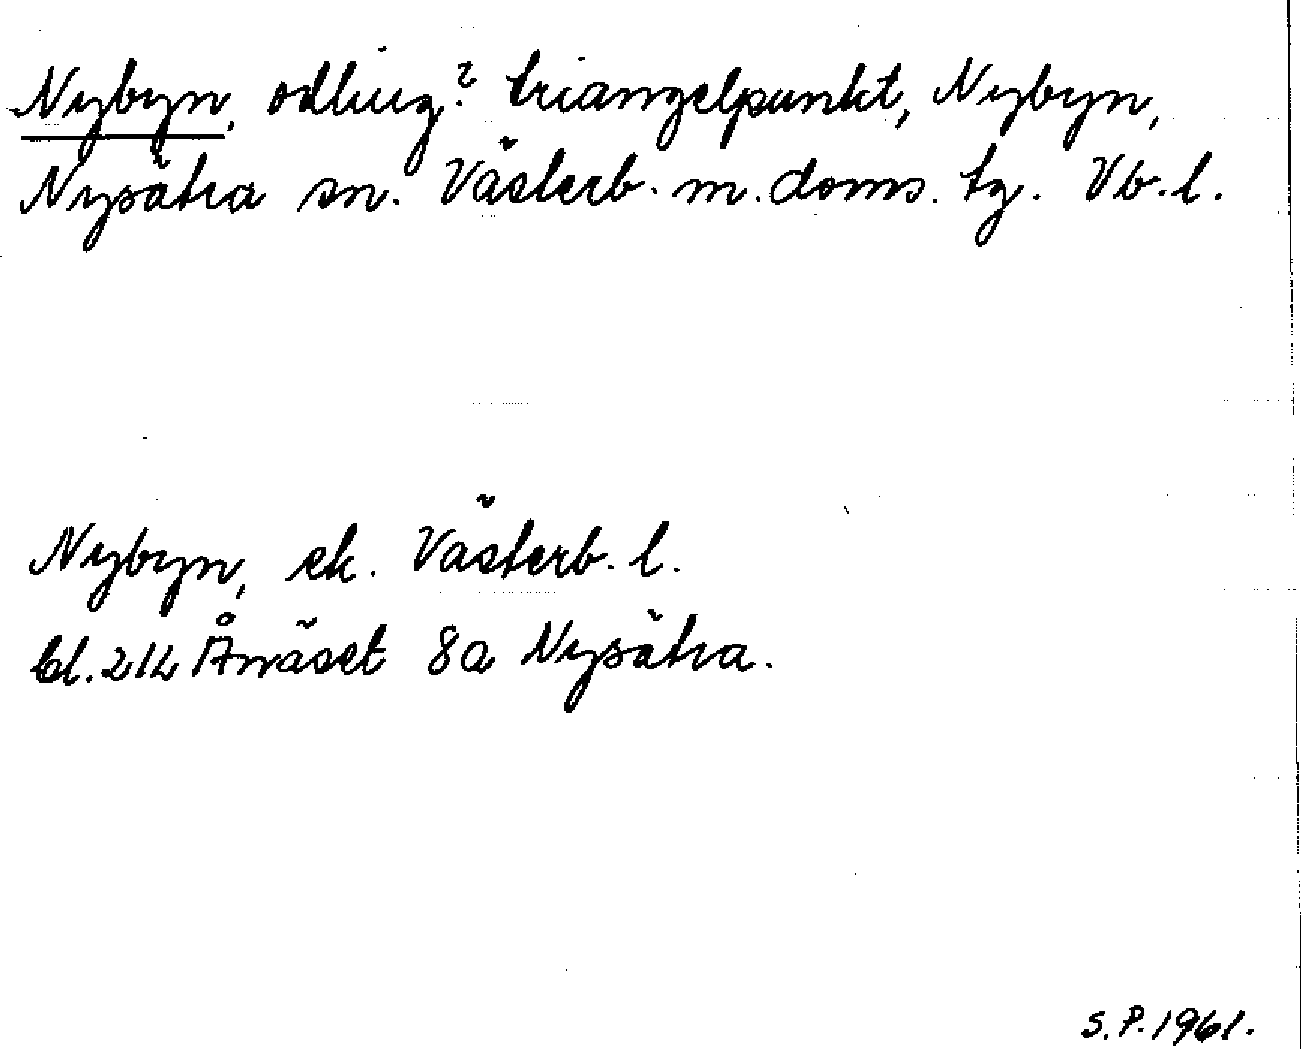 Nybyn, odling? triangelpunkt, Nybyn,
Nysätra sn. Västerb. m. doms. tg. Vb. l.
Nybyn, ek. Västerb. l.
bl. 214 Ånäset 8a Nysätra.
S.P. 1961.